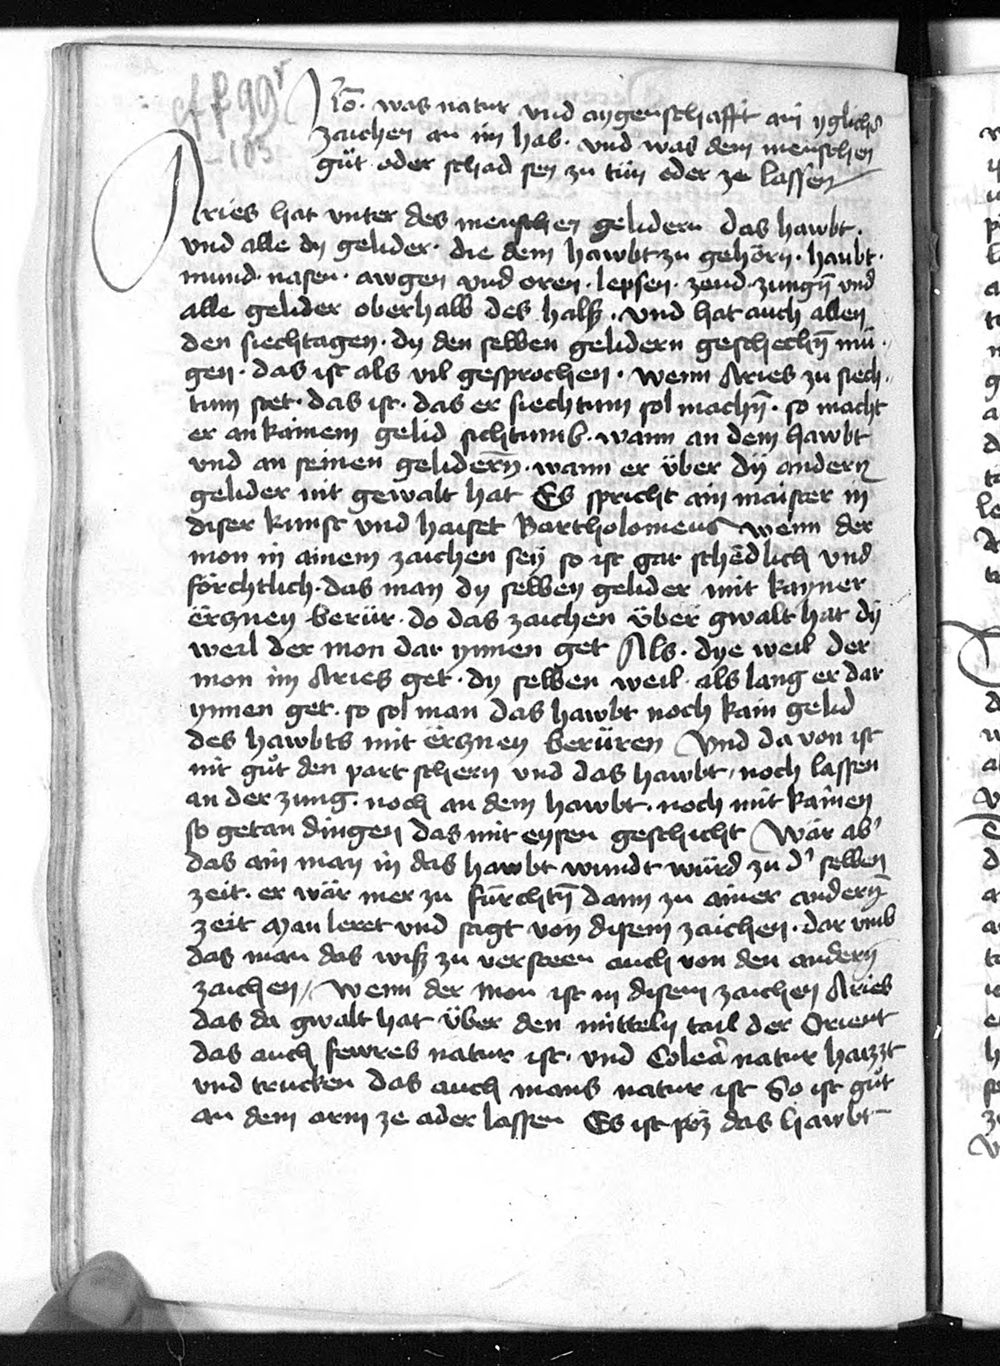 cf f 99r
-103
Itō. was natur vnd aygenschafft ain yglichs
zaichen an im hab. vnd was dem menschen
güt oder schad sey zu tün oder ze lassen
Aries hat vnter des menschen gelidern das hawbt.
vnd alle dy gelider. die dem hawbt zu gehörn. haubt.
mund. nasen. awgen vnd oren. lepsen. zend. zungn̄ vnd
alle gelider oberhalb des halß. vnd hat auch allen
den siechtagen. dy den selben gelidern geschechn̄ mü.
gen. das ist als vil gesprochen. wenn Aries zu siech,,
tum stet. das ist. das er siechtum sol machn̄. so macht
er an kainem gelid sichtumb. wann an dem hawbt
vnd an seinen gelidern̄. wann er über dÿ andern
gelider nit gewalt hat Es spricht ain maister in
diser kunst vnd haiset Bartholomeus wenn der
mon in ainem zaichen seÿ so ist gar schëdlich vnd
förchtlich. das man dy selben gelider mit kayner
ërtzney berür. do das zaichen über gwalt hat dÿ
weil der mon dar ynnen get Als. dye weil der
mon im Aries get. dy selben weil. als lang er dar
ynnen get. so sol man das hawbt noch kain gelid
des hawbts mit ërtzney berüren Vnd da von ist
nit gůt den part schern vnd das hawbt, noch lassen
an der zung. noch an dem hawbt. noch mit kainen
so getan dingen das mit eysen geschicht Wär ab'
das ain man in das hawbt wundt würd zu d' selben
zeit. er wär mer zu fürchtn̄ dann zu ainer andern̄
zeit Man leret vnd sagt von disem zaichen. dar vmb
das man das wiß zu versteen auch von den andern̄
zaichen / Wenn der Mon ist in disem zaichen Aries
das da gwalt hat über den mitteln tail der Orient
das auch fewres natur ist. vnd Coleā natur haizzt
vnd trucken das auch mans natur ist So ist gůt
an dem arm ze ader lassen Es ist pöz das hawbt